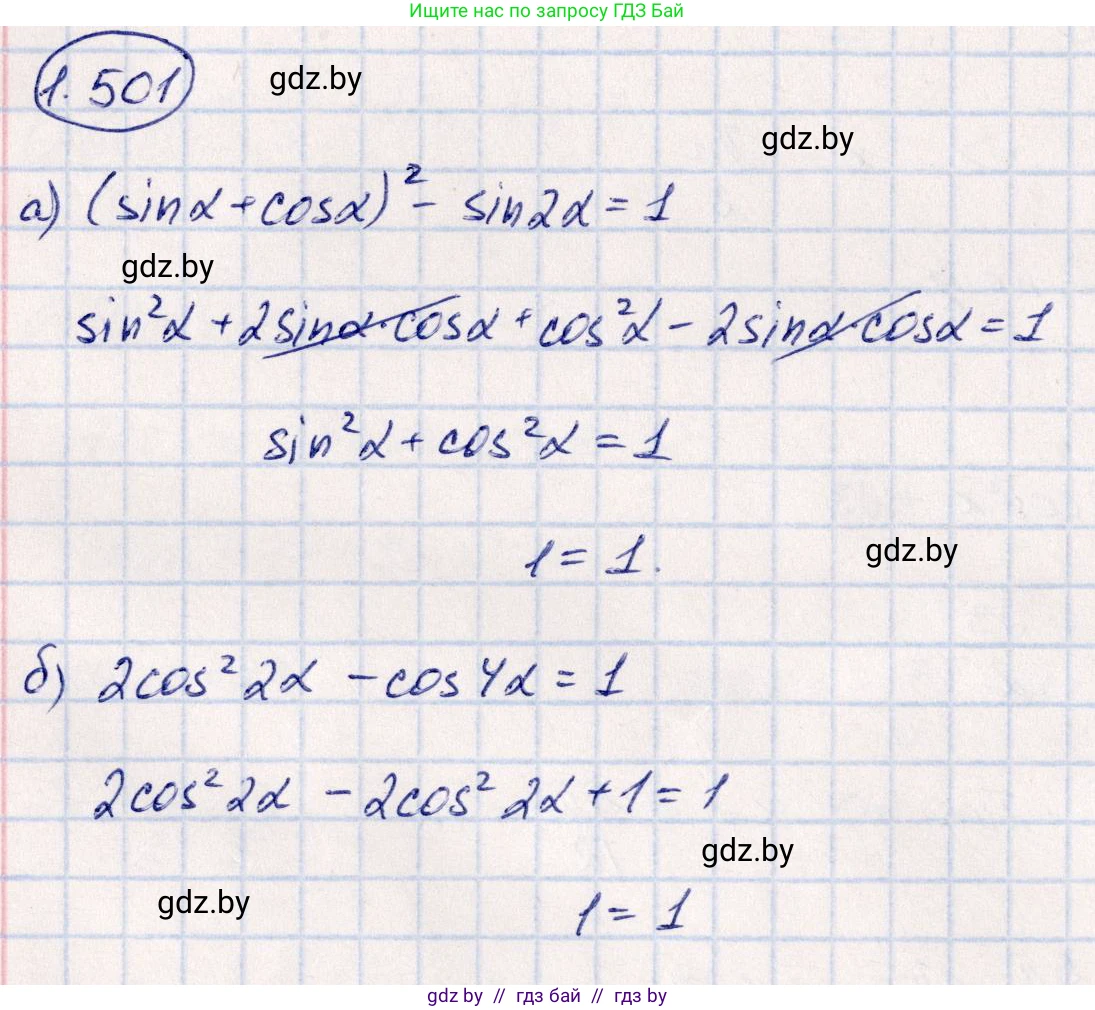 Ищите нас по запросу ГДЗ Бай
1.501
gdz.by
gdz.by
а) (sinα+cosα)² - sin2α = 1
gdz.by
sin²α + 2sinα·cosα + cos²α - 2sinα·cosα = 1
sin²α + cos²α = 1
1 = 1.
gdz.by
б) 2cos²2α - cos4α = 1
2cos²2α - 2cos²2α + 1 = 1
gdz.by
gdz.by
1 = 1
gdz.by // гдз бай // гдз by